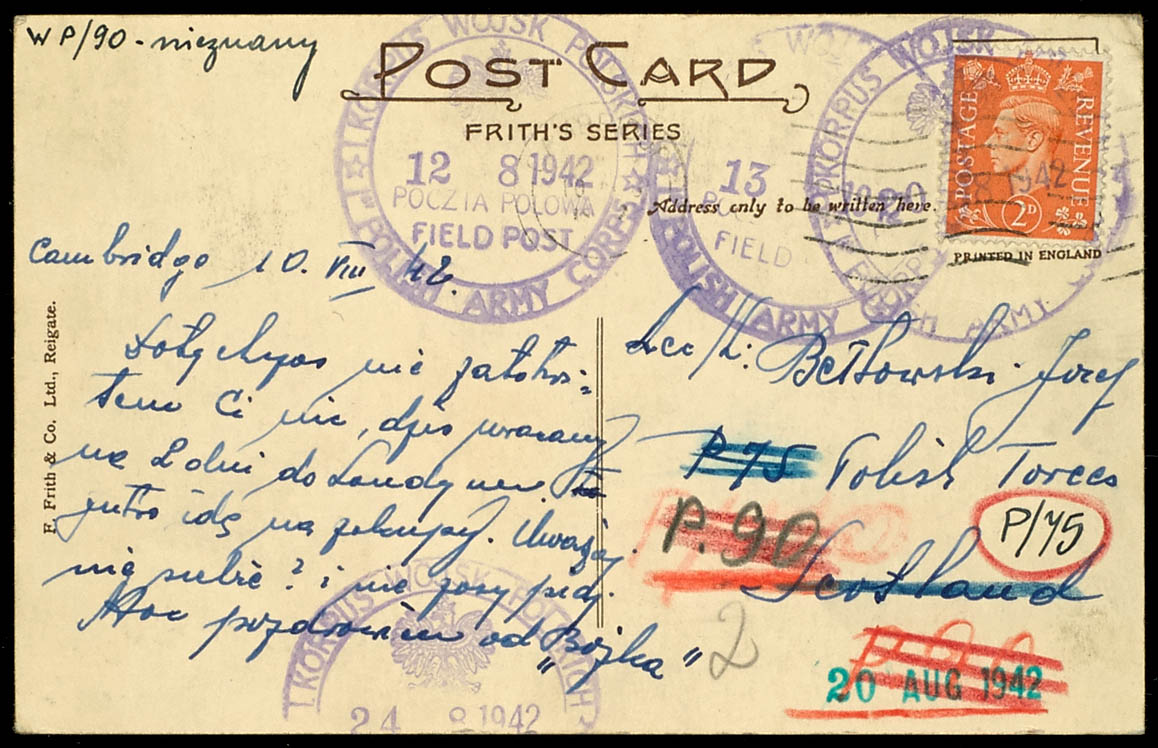 WP/90 - nieznany
POST CARD
FRITH'S SERIES
I KORPUS WOJSK POLSKICH
12 8 1942
POCZTA POLOWA
FIELD POST
POLISH ARMY CORPS
13
FIELD
POLISH ARMY
KORPUS WOJSK
ARMY
8 1942
POSTAGE
REVENUE
2D
Address only to be written here.
PRINTED IN ENGLAND
F. Frith & Co. Ltd., Reigate.
Cambridge 10. VIII 42.
Dotychczas nie załatwi=
łem Ci nic, dziś wracamy
na 2 dni do Londynu.
jutro idę na zakupy. Uważaj
na siebie? i nie
Moc pozdrowień od
"Bójka"
Józef
P75 Polish Forces
P.90
P/75
Scotland
2
20 AUG 1942
I KORPUS WOJSK POLSKICH
24 8 1942